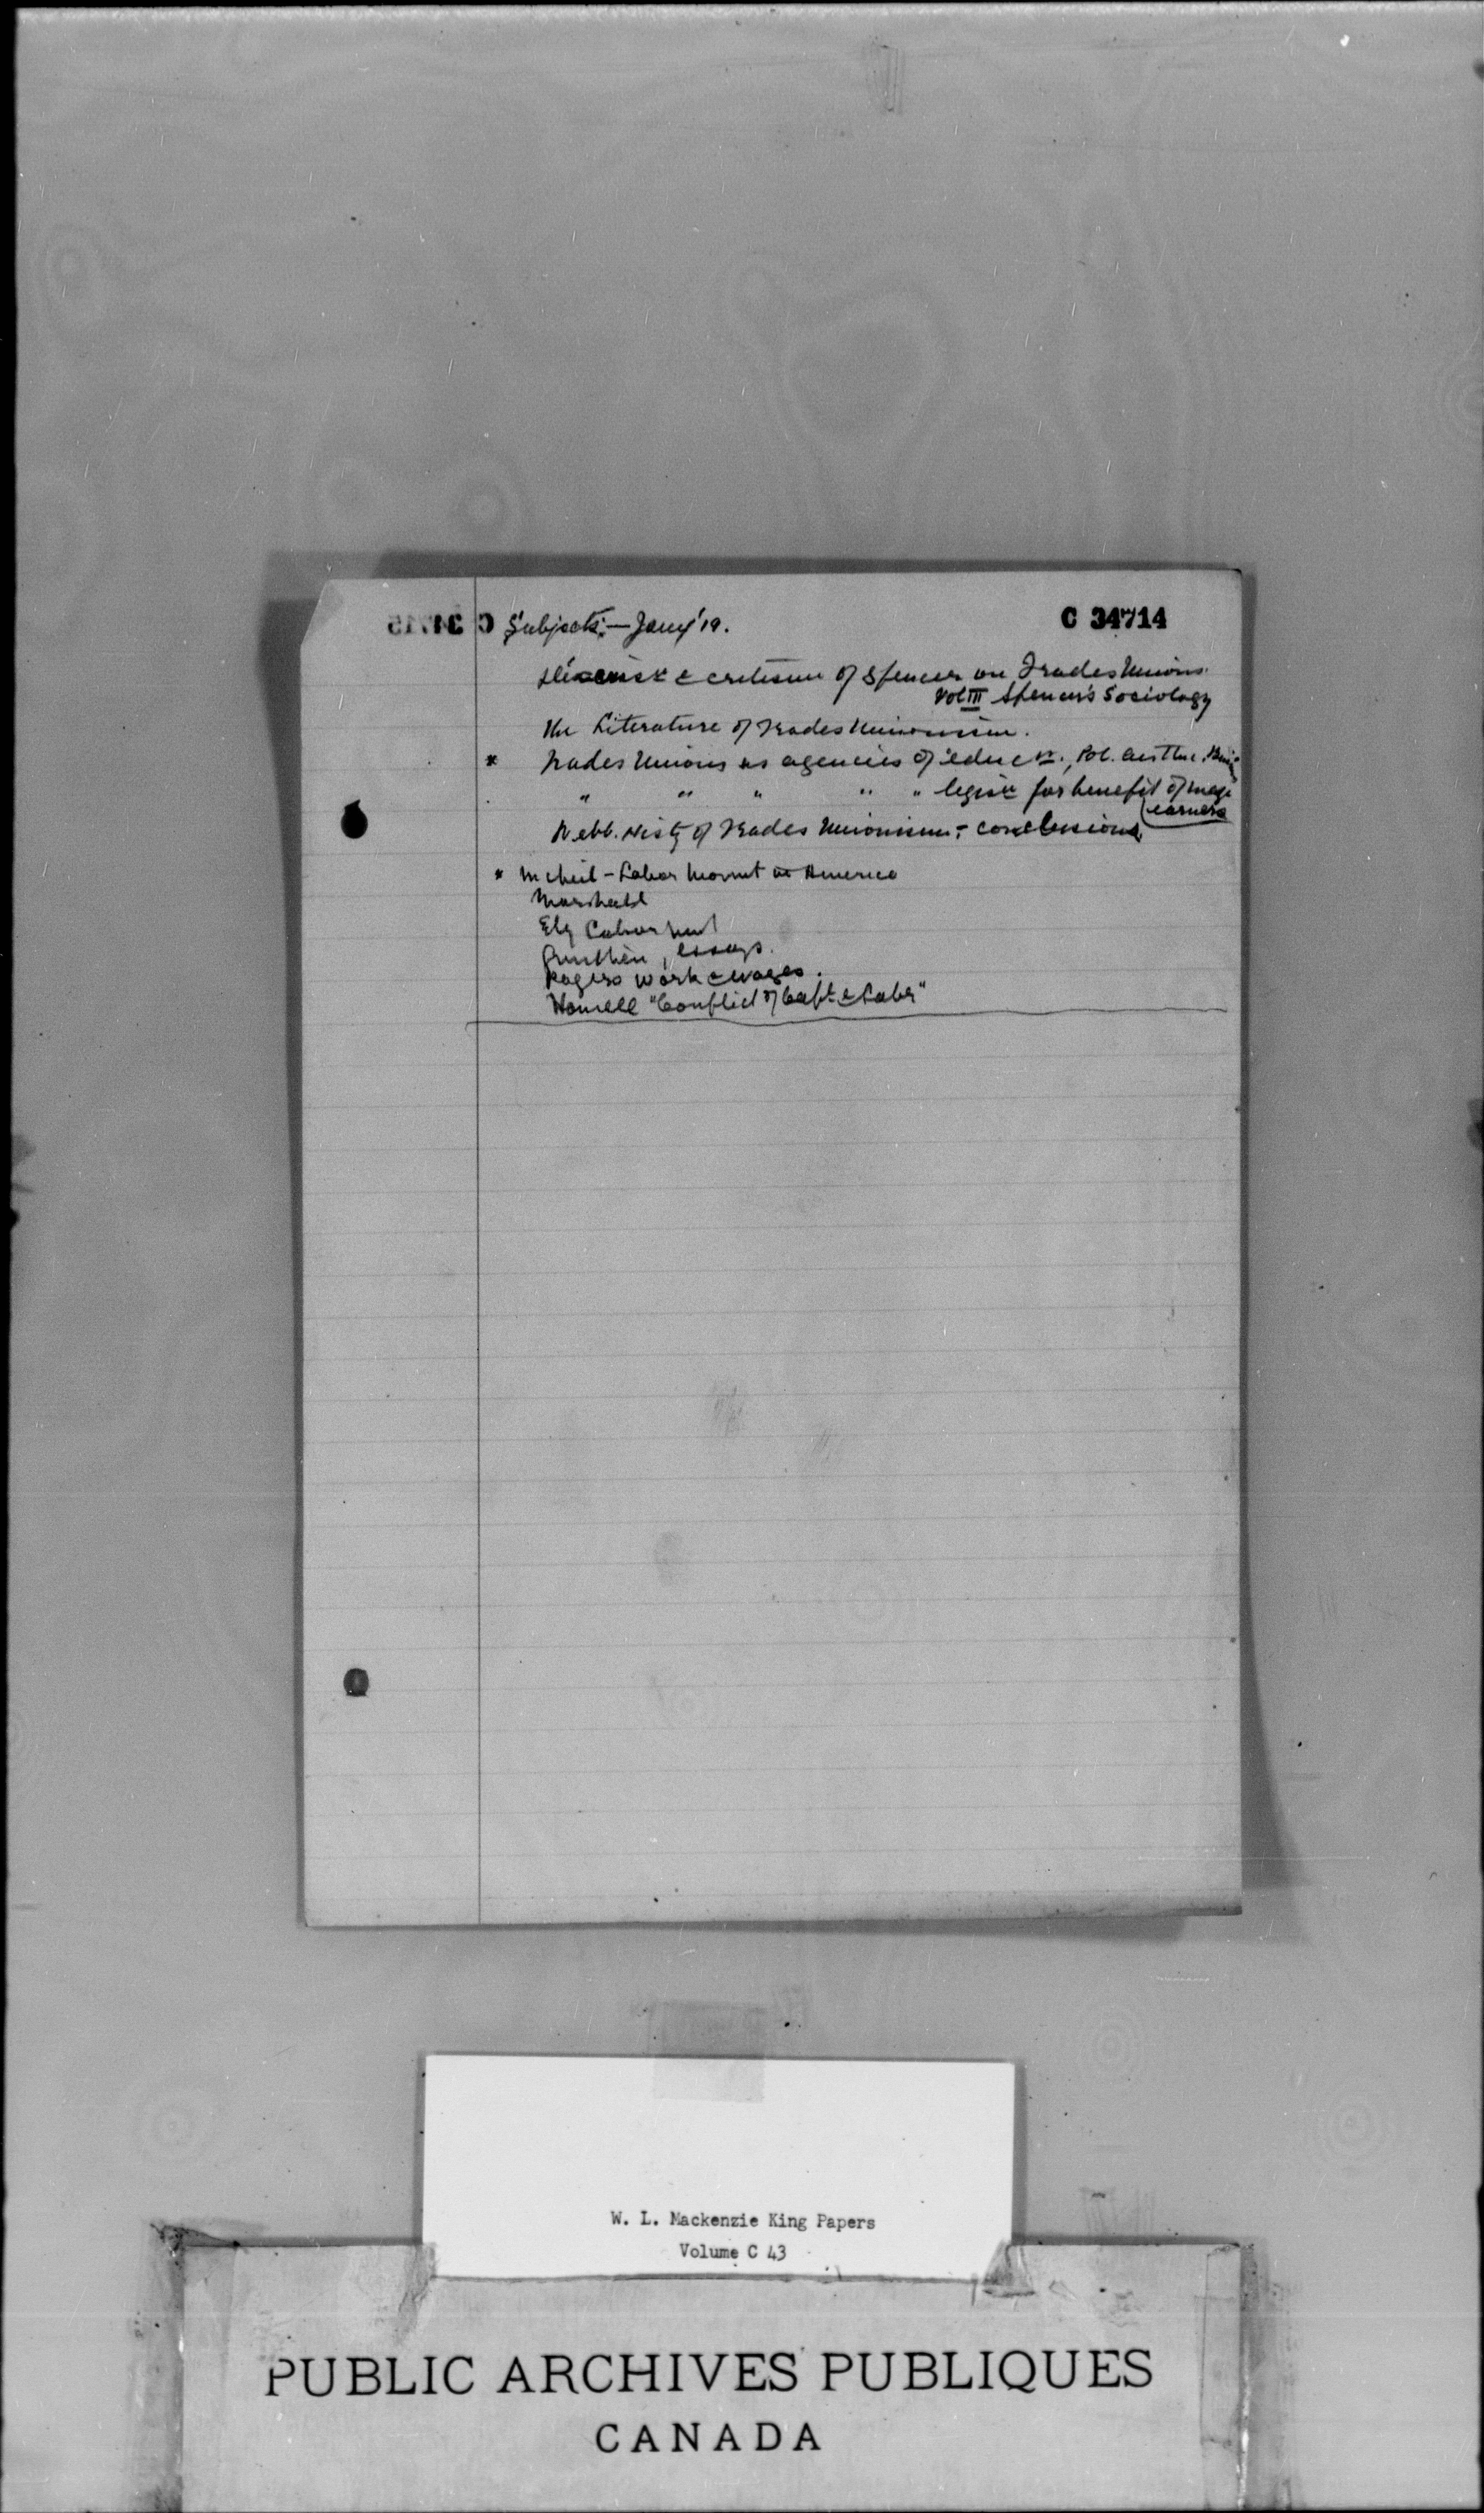 C 34714
Subjects:— Jany 19.
Discussn & criticism of Spencer on Trades Unions.
Vol III Spencer's Sociology
The Literature of Trades Unionism.
* Trades Unions as agencies of educn., Pol.
" " " " " legisn for benefit of wage
earners
Webb. Histy of Trades Unionism - conclusions.
* McNeil - Labor Movmt in America
Marshall
Ely Labor Mvt
Brentano, essays.
Rogers work & wages.
Howell "Conflict of Capt & Labr"
W. L. Mackenzie King Papers
Volume C 43
PUBLIC ARCHIVES PUBLIQUES
CANADA